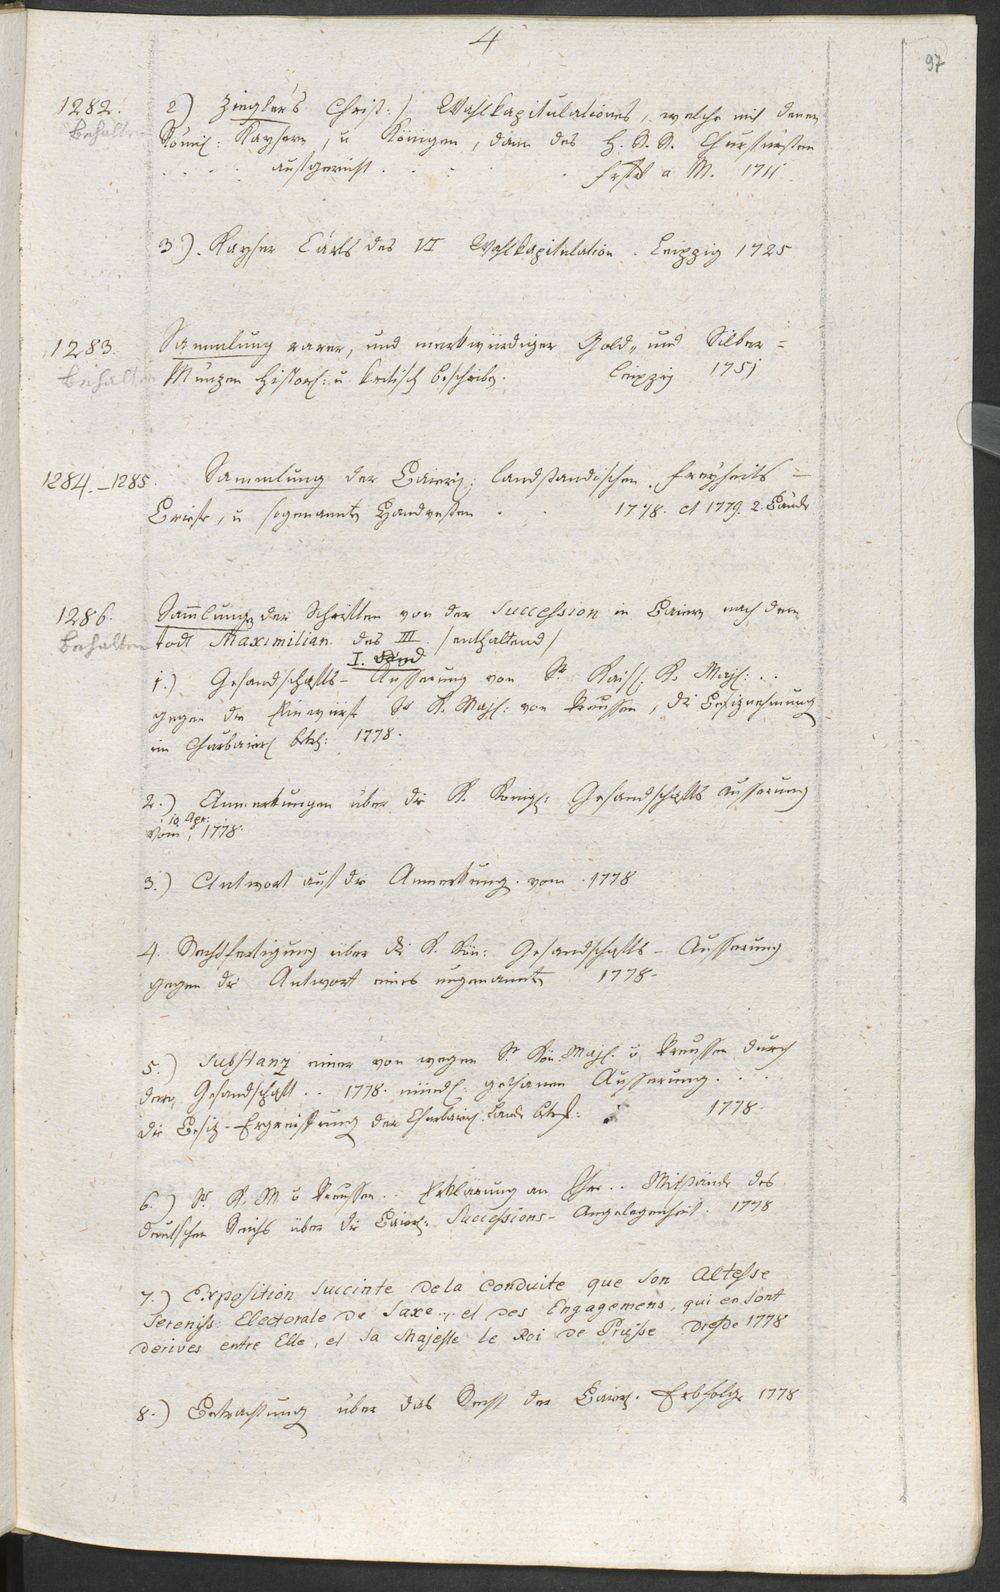 4
97
1282. 2) Ziegler's Christ. / Wahlkapitulationes, welche mit denen
Behalten Römis: Kaysern, u Königen, dann des H. R. R. Churfürsten
aufgericht . . . . . Frftt a M. 1711.
3). Kayser Carls des VI Wahlkapitulation. Leipzig 1725
1283. Sammlung rarer, und merkwürdiger Gold- und Silber=
Behalten Münzen histors: u kritisch beschrieben. Leipzig 1751
1284.-1285. Sammlung der Baieris: landständischen Freyheits=
Briefe, u sogenannte Handvesten . . 1778. et 1779. 2. Bände
1286. Sam̄lung der Schriften von der Succession in Baiern nach dem
Behalten todt Maximilian des III. /enthaltend/
I. Band
1.) Gesandschafts- Äusserung von Sr Kaiss. K. Majs: . .
gegen die Einwürfe Sr K. Majs: von Preussen, die Besiznehmung
in Churbaiern betrf: 1778.
2.) Anmerkungen über die K. Königs: Gesandschafts Äusserung
10 Apr:
vom 1778.
3.) Antwort auf die Anmerkung. vom . 1778
4. Rechtfertigung über die K. Kön: Gesandschafts- Äusserung
gegen die Antwort eines ungenannten 1778-
5.) Substanz einer von wegen Sr Kön. Majs. v. Preussen durch
dero Gesandschaft . . 1778. mündl: gethanen Äusserung. . .
die Besitz-Ergreiffung der Churbairis. Lande betrf: 1778.
6.) Sr K. M v Preussen . . Erklärung an Ihre . . Mitstände des
deutschen Reichs über die Bairis: Successions- Angelegenheit. 1778
7.) Exposition Succinte de la conduite que Son Altesse
Sereniss: Electorale de Saxe . , et des Engagemens, qui en sont
derives entre Elle, et Sa Majeste le Roi de Prusse Dresde 1778
8.) Betrachtung über das Recht der Bairis. Erbfolge 1778